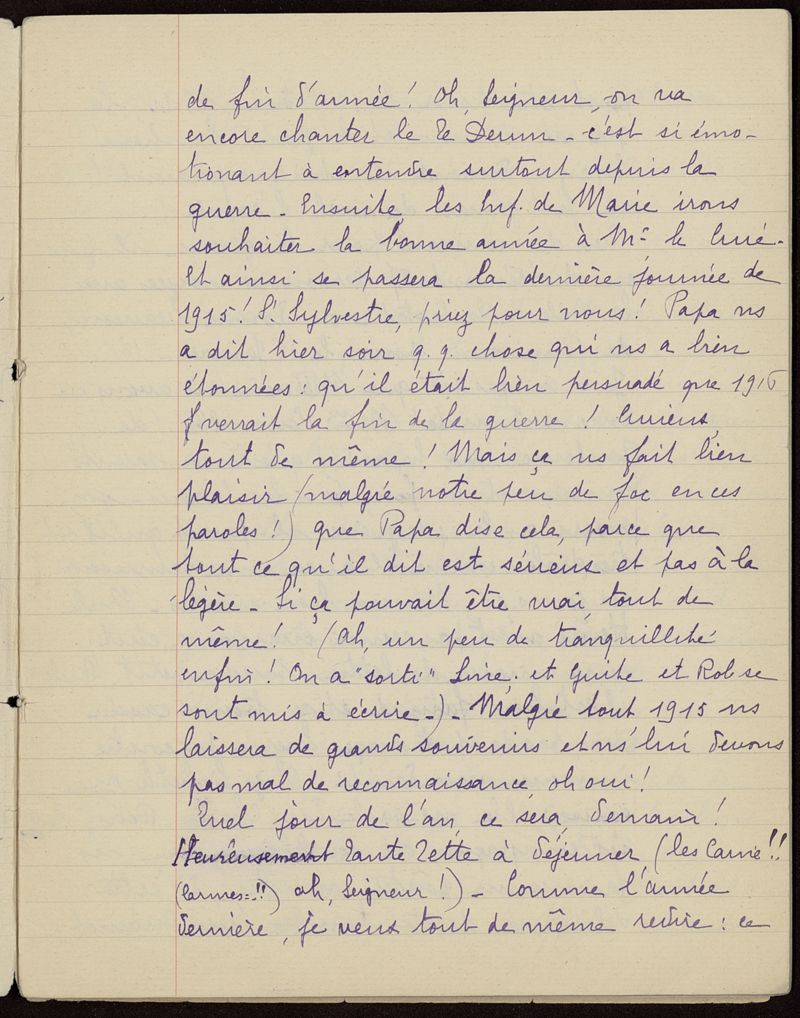 de fin d'année ! Oh, Seigneur, on va
encore chanter le Te Deum - c'est si émo-
tionant à entendre surtout depuis la
guerre - Ensuite, les Enf. de Marie irons
souhaiter la bonne année à Mr le Curé -
Et ainsi se passera la dernière journée de
1915 ! St Sylvestre, priez pour nous ! Papa ns
a dit hier soir q. q. chose qui ns a bien
étonnées : qu'il était bien persuadé que 1916
verrait la fin de la guerre ! Curieux,
tout de même ! Mais ça ns fait bien
plaisir (malgré notre peu de foi en ces
paroles !) que Papa dise cela, parce que
tout ce qu'il dit est sérieux et pas à la
légère - Si ça pouvait être vrai, tout de
même ! (Ah, un peu de tranquillité
enfin ! On a "sorti" et Guite et Rob se
sont mis à écrire -) - Malgré tout 1915 ns
laissera de grands souvenirs et ns lui devons
pas mal de reconnaissance, oh oui !
Quel jour de l'an, ce sera, demain !
Heureusement Tante Zette à déjeuner (les !!
(larmes = -!!) ah, Seigneur !) - Comme l'année
dernière, je veux tout de même redire : ce